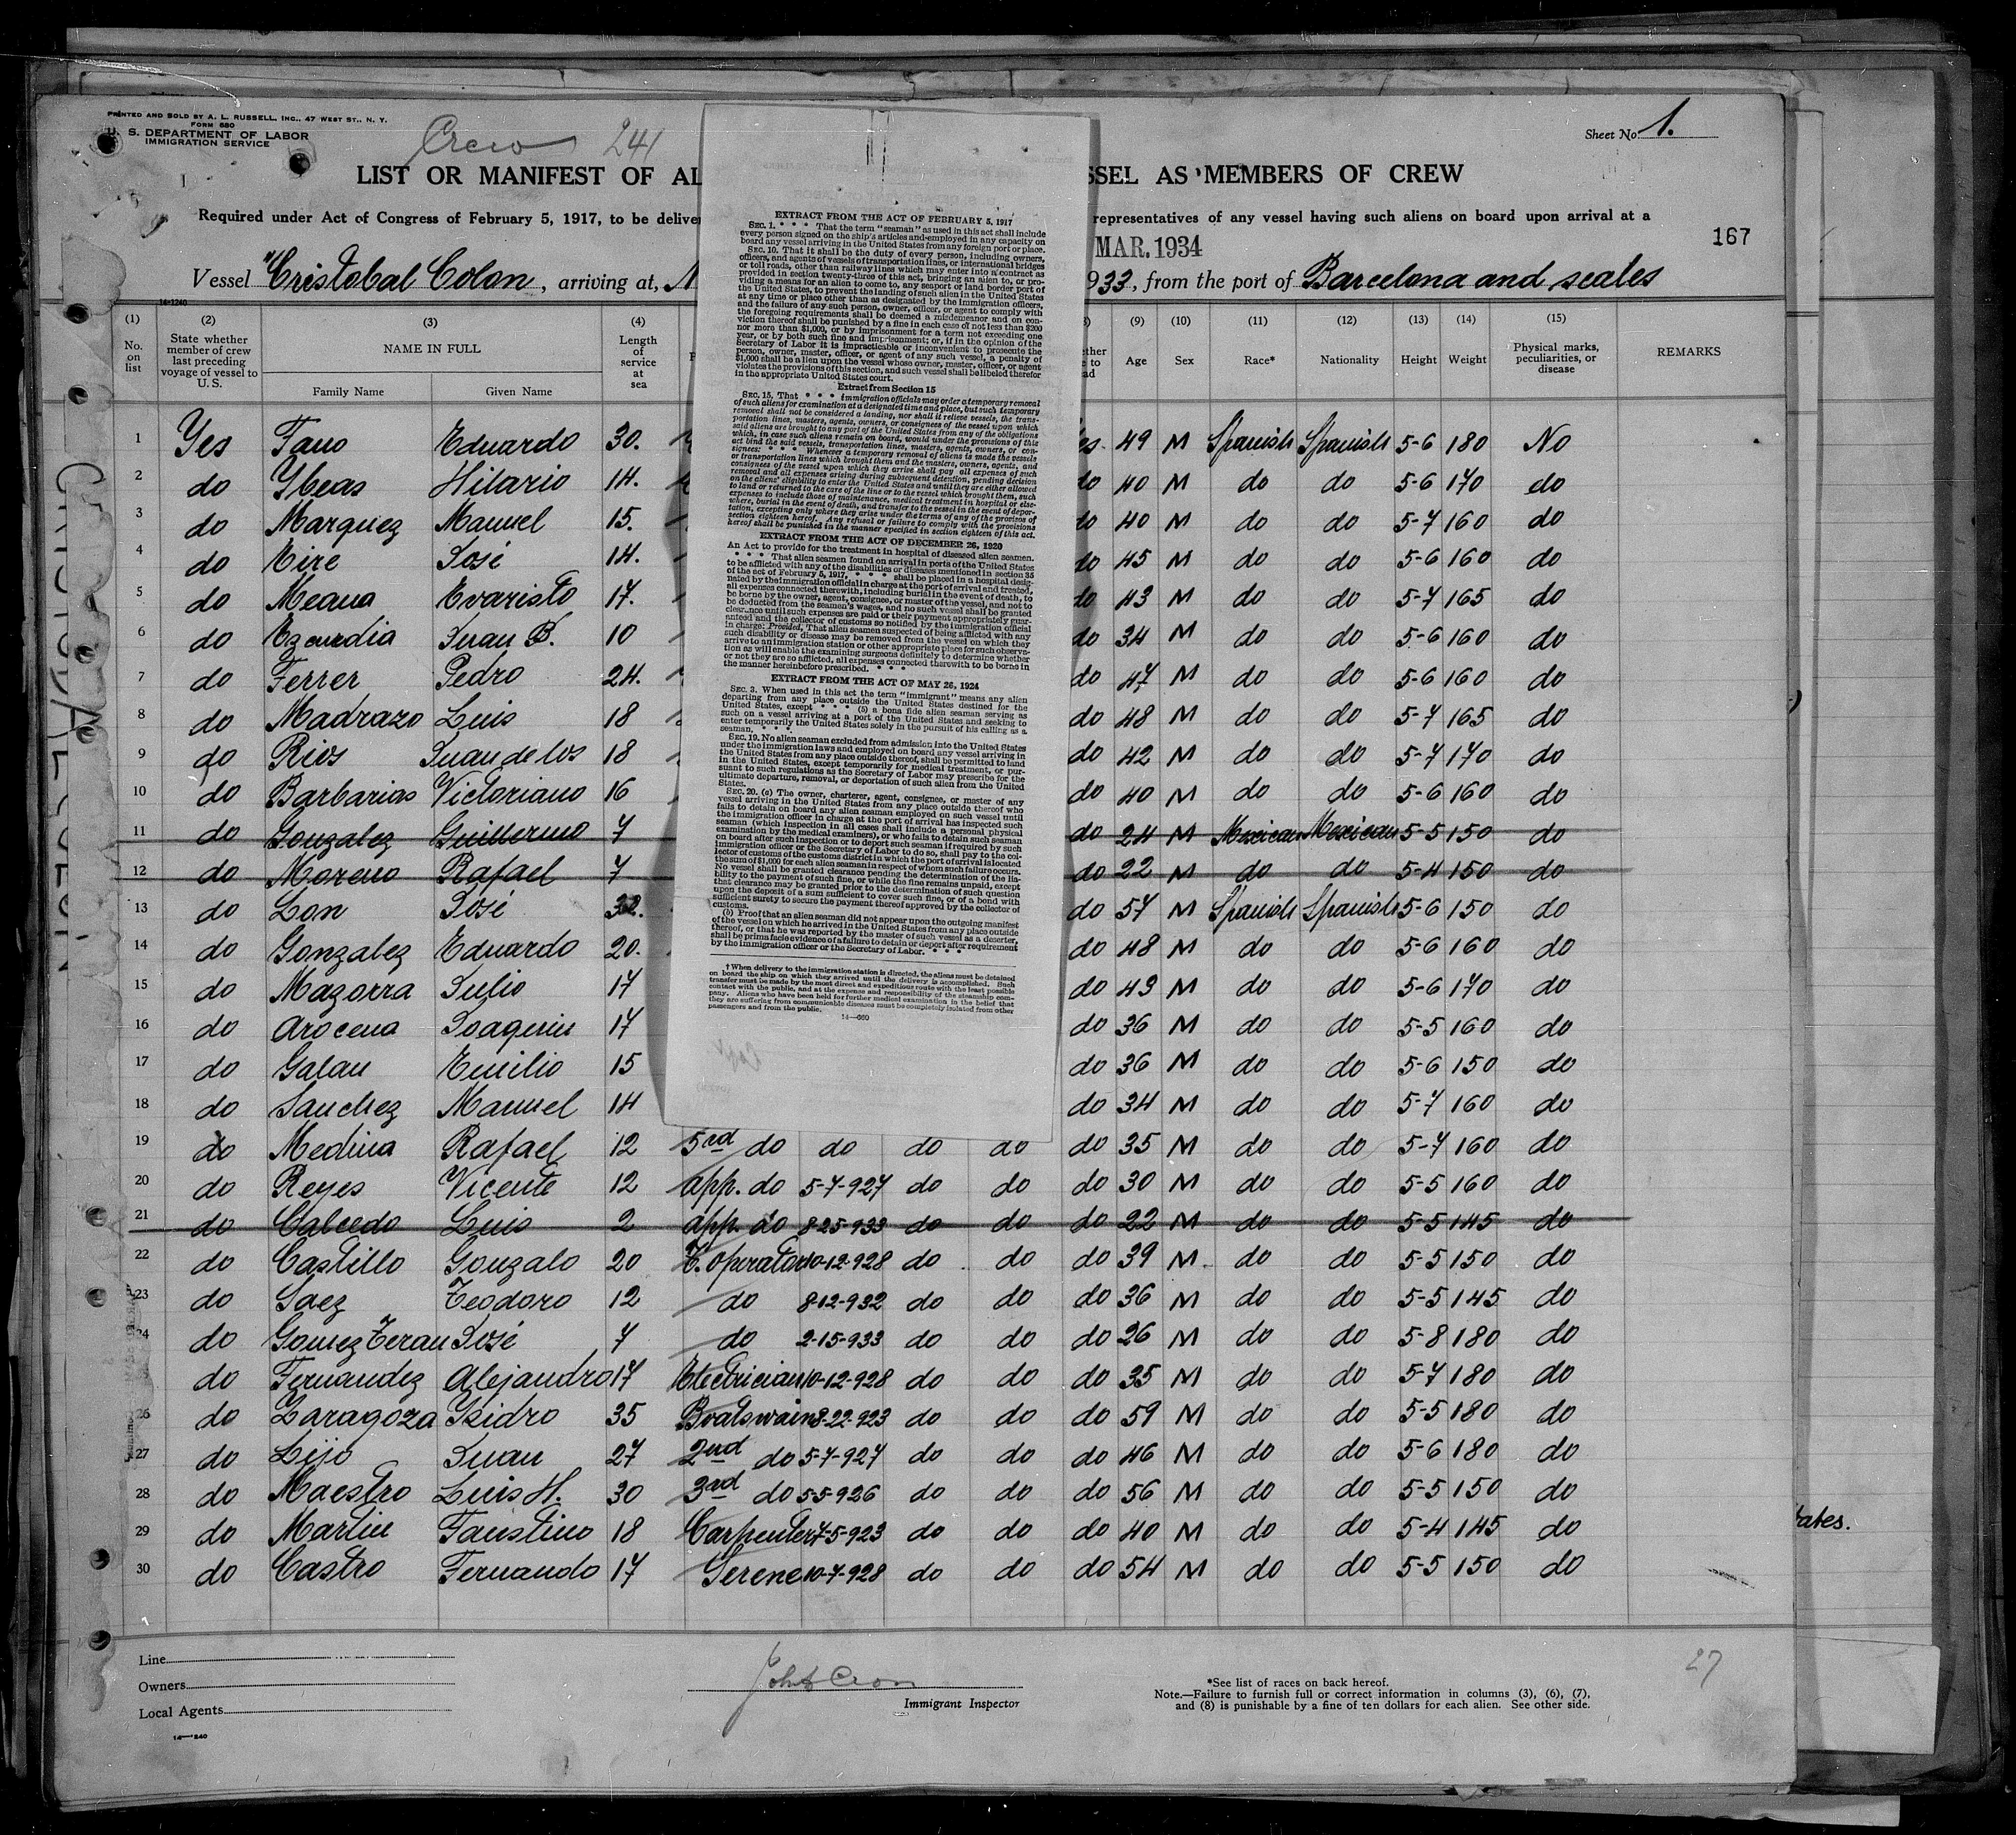 PRINTED AND SOLD BY A. L. RUSSELL, INC., 47 WEST ST., N. Y.
FORM 680
U. S. DEPARTMENT OF LABOR
IMMIGRATION SERVICE
Crew 241
Sheet No. 1.
LIST OR MANIFEST OF AL
SSEL AS MEMBERS OF CREW
Required under Act of Congress of February 5, 1917, to be deliver
representatives of any vessel having such aliens on board upon arrival at a
MAR. 1934
167
Vessel "Cristobal Colon, arriving at, N
933, from the port of Barcelona and scales
14-1240
(1) (2) (3) (4) (9) (10) (11) (12) (13) (14) (15)
No. on list
State whether member of crew last preceding voyage of vessel to U.S.
NAME IN FULL
Family Name
Given Name
Length of service at sea
Age
Sex
Race*
Nationality
Height
Weight
Physical marks, peculiarities, or disease
REMARKS
1 Yes Fano Eduardo 30. es. 49 M Spanish Spanish 5-6 180 No
2 do Ybeas Hilario 14. do 40 M do do 5-6 170 do
3 do Marquez Manuel 15. do 40 M do do 5-7 160 do
4 do Eire José 14. do 45 M do do 5-6 160 do
5 do Meana Evaristo 17. do 43 M do do 5-7 165 do
6 do Ezcurdia Juan B. 10 do 34 M do do 5-6 160 do
7 do Ferrer Pedro 24. do 47 M do do 5-6 160 do
8 do Madrazo Luis 18 do 48 M do do 5-7 165 do
9 do Rios Juan de los 18 do 42 M do do 5-7 170 do
10 do Barbarias Victoriano 16 do 40 M do do 5-6 160 do
11 do Gonzalez Guillermo 7 do 24 M Mexican Mexican 5-5 150 do
12 do Moreno Rafael 7 do 22 M do do 5-4 150 do
13 do Lon José 32. do 57 M Spanish Spanish 5-6 150 do
14 do Gonzalez Eduardo 20. do 48 M do do 5-6 160 do
15 do Mazorra Julio 17 do 43 M do do 5-6 170 do
16 do Arocena Joaquin 17 do 36 M do do 5-5 160 do
17 do Galan Emilio 15 do 36 M do do 5-6 150 do
18 do Sanchez Manuel 14 do 34 M do do 5-7 160 do
19 do Medina Rafael 12 5rd do do do do do 35 M do do 5-7 160 do
20 do Reyes Vicente 12 app. do 5-7-927 do do do 30 M do do 5-5 160 do
21 do Calcedo Luis 2 app. do 8-25-933 do do do 22 M do do 5-5 145 do
22 do Castillo Gonzalo 20 T. operator 10-12-928 do do do 39 M do do 5-5 150 do
23 do Saez Teodoro 12 do 8-12-932 do do do 36 M do do 5-5 145 do
24 do Gomez Teran José 7 do 2-15-933 do do do 26 M do do 5-8 180 do
do Fernandez Alejandro 17 Electrician 10-12-928 do do do 35 M do do 5-7 180 do
26 do Zaragoza Isidro 35 Boatswain 8-22-923 do do do 59 M do do 5-5 180 do
27 do Lijo Juan 27 2nd do 5-7-927 do do do 46 M do do 5-6 180 do
28 do Maestro Luis H. 30 3rd do 5-5-926 do do do 56 M do do 5-5 150 do
29 do Martin Faustino 18 Carpenter 7-5-923 do do do 40 M do do 5-4 145 do
30 do Castro Fernando 17 Serene 10-7-928 do do do 54 M do do 5-5 150 do
Line
Owners
Local Agents
Immigrant Inspector
*See list of races on back hereof.
Note.—Failure to furnish full or correct information in columns (3), (6), (7),
and (8) is punishable by a fine of ten dollars for each alien. See other side.
27
EXTRACT FROM THE ACT OF FEBRUARY 5, 1917
SEC. 1. * * * That the term "seaman" as used in this act shall include
every person signed on the ship's articles and employed in any capacity on
board any vessel arriving in the United States from any foreign port or place.
SEC. 10. That it shall be the duty of every person, including owners,
officers, and agents of vessels of transportation lines, or international bridges
or toll roads, other than railway lines which may enter into a contract as
provided in section twenty-three of this act, bringing an alien to, or pro-
viding a means for an alien to come to, any seaport or land border port of
the United States, to prevent the landing of such alien in the United States
at any time or place other than as designated by the immigration officers,
and the failure of any such person, owner, officer, or agent to comply with
the foregoing requirements shall be deemed a misdemeanor and on con-
viction thereof shall be punished by a fine in each case of not less than $200
nor more than $1,000, or by imprisonment for a term not exceeding one
year, or by both such fine and imprisonment; or, if in the opinion of the
Secretary of Labor it is impracticable or inconvenient to prosecute the
person, owner, master, officer, or agent of any such vessel, a penalty of
$1,000 shall be a lien upon the vessel whose owner, master, officer, or agent
violates the provisions of this section, and such vessel shall be libeled therefor
in the appropriate United States court.
Extract from Section 15
SEC. 15. That * * * immigration officials may order a temporary removal
of such aliens for examination at a designated time and place, but such temporary
removal shall not be considered a landing, nor shall it relieve vessels, the trans-
portation lines, masters, agents, owners, or consignees of the vessel upon which
said aliens are brought to any port of the United States from any of the obligations
which, in case such aliens remain on board, would under the provisions of this
act bind the said vessels, transportation lines, masters, agents, owners, or con-
signees: * * * Whenever a temporary removal of aliens is made the vessels
or transportation lines which brought them and the masters, owners, agents, and
consignees of the vessel upon which they arrive shall pay all expenses of such
removal and all expenses arising during subsequent detention, pending decision
on the aliens' eligibility to enter the United States and until they are either allowed
to land or returned to the care of the line or to the vessel which brought them, such
expenses to include those of maintenance, medical treatment in hospital or else-
where, burial in the event of death, and transfer to the vessel in the event of depor-
tation, excepting only where they arise under the terms of any of the provisos of
section eighteen hereof. Any refusal or failure to comply with the provisions
hereof shall be punished in the manner specified in section eighteen of this act.
EXTRACT FROM THE ACT OF DECEMBER 26, 1920
An Act to provide for the treatment in hospital of diseased alien seamen.
* * * That alien seamen found on arrival in ports of the United States
to be afflicted with any of the disabilities or diseases mentioned in section 35
of the act of February 5, 1917, * * * shall be placed in a hospital desig-
nated by the immigration official in charge at the port of arrival and treated,
all expenses connected therewith, including burial in the event of death, to
be borne by the owner, agent, consignee, or master of the vessel, and not to
be deducted from the seamen's wages, and no such vessel shall be granted
clearance until such expenses are paid or their payment appropriately guar-
anteed and the collector of customs so notified by the immigration official
in charge: Provided, That alien seamen suspected of being afflicted with any
such disability or disease may be removed from the vessel on which they
arrive to an immigration station or other appropriate place for such observa-
tion as will enable the examining surgeons definitely to determine whether
or not they are so afflicted, all expenses connected therewith to be borne in
the manner hereinbefore prescribed. * * *
EXTRACT FROM THE ACT OF MAY 26, 1924
SEC. 3. When used in this act the term "immigrant" means any alien
departing from any place outside the United States destined for the
United States, except * * * (5) a bona fide alien seaman serving as
such on a vessel arriving at a port of the United States and seeking to
enter temporarily the United States solely in the pursuit of his calling as a
seaman, * * *.
SEC. 19. No alien seaman excluded from admission into the United States
under the immigration laws and employed on board any vessel arriving in
the United States from any place outside thereof, shall be permitted to land
in the United States, except temporarily for medical treatment, or pur-
suant to such regulations as the Secretary of Labor may prescribe for the
ultimate departure, removal, or deportation of such alien from the United
States.
SEC. 20. (a) The owner, charterer, agent, consignee, or master of any
vessel arriving in the United States from any place outside thereof who
fails to detain on board any alien seaman employed on such vessel until
the immigration officer in charge at the port of arrival has inspected such
seaman (which inspection in all cases shall include a personal physical
examination by the medical examiners), or who fails to detain such seaman
on board after such inspection or to deport such seaman if required by such
immigration officer or the Secretary of Labor to do so, shall pay to the col-
lector of customs of the customs district in which the port of arrival is located
the sum of $1,000 for each alien seaman in respect of whom such failure occurs.
No vessel shall be granted clearance pending the determination of the lia-
bility to the payment of such fine, or while the fine remains unpaid, except
that clearance may be granted prior to the determination of such question
upon the deposit of a sum sufficient to cover such fine, or of a bond with
sufficient surety to secure the payment thereof approved by the collector of
customs.
(b) Proof that an alien seaman did not appear upon the outgoing manifest
of the vessel on which he arrived in the United States from any place outside
thereof, or that he was reported by the master of such vessel as a deserter,
shall be prima facie evidence of a failure to detain or deport after requirement
by the immigration officer or the Secretary of Labor. * * *
† When delivery to the immigration station is directed, the aliens must be detained
on board the ship on which they arrived until the delivery is accomplished. Such
transfer must be made by the most direct and expeditious route with the least possible
contact with the public, and at the expense and responsibility of the steamship com-
pany. Aliens who have been held for further medical examination in the belief that
they are suffering from communicable diseases must be completely isolated from other
passengers and from the public.
14—660
tates.